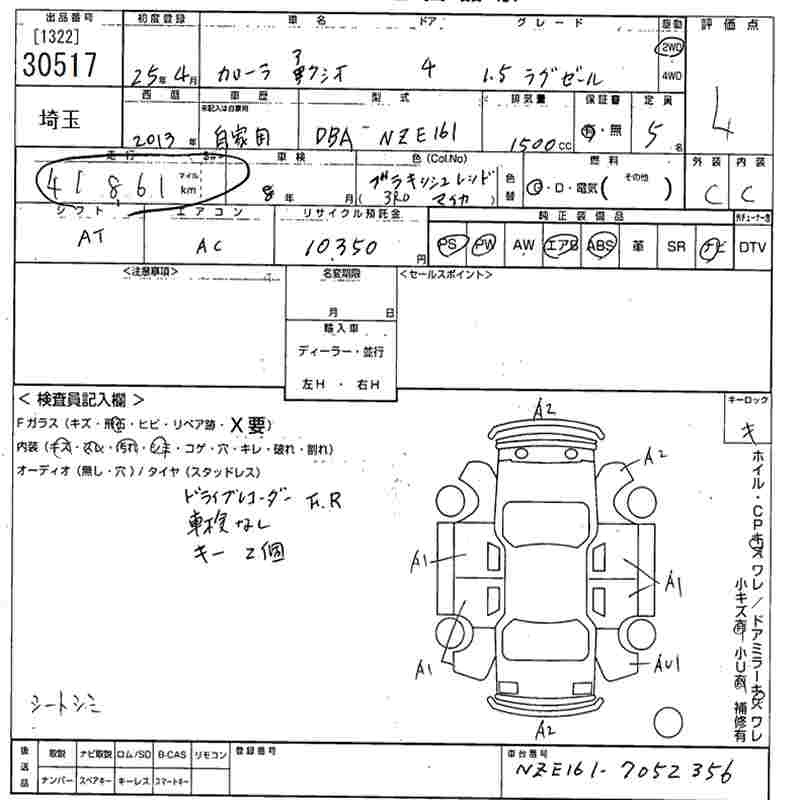 出品番号 初度登録 車名 ドア グレード 駆動 評価点
[1322]
30517 25年4月 カローラ アクシオ 4 1.5 ラグゼール 2WD 4WD 4
埼玉 西暦 車歴 型式 排気量 保証書 定員
未記入は自家用
2013年 自家用 DBA-NZE161 1500cc 有・無 5名
走行 車検 色(Col.No) 燃料 外装 内装
41,861 マイル km 年 月 ブラキッシュレッド マイカ (3R0) 色替 G・D・電気(その他) C C
シフト エアコン リサイクル預託金 純正装備品
AT AC 10,350円 PS PW AW エアB ABS 革 SR ナビ DTV
<注意事項> 名変期限 <セールスポイント>
月 日
輸入車
ディーラー・並行
左H・右H
<検査員記入欄> キーロック
Fガラス(キズ・飛石・ヒビ・リペア跡・X要) キ
内装(キズ・ヨレ・汚れ・シミ・コゲ・穴・キレ・破れ・割れ)
オーディオ(無し・穴)/タイヤ(スタッドレス)
ドライブレコーダー F.R
車検なし
キー 2個
A2
A2
A1
A1
A1
AU1
A2
ホイル・CPキズワレ/ドアミラーキズワレ
小キズ有 小U有 補修有
シートシミ
後送品 取説 ナビ取説 ロム/SD B-CAS リモコン 登録番号 車台番号
ナンバー スペアキー キーレス スマートキー NZE161-7052356